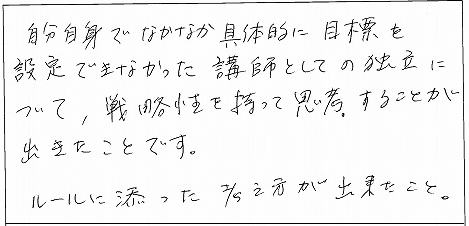 自分自身でなかなか具体的に目標を
設定できなかった講師としての独立に
ついて，戦略性を持って思考。することが
出きたことです。
ルールに添った が出来たこと。